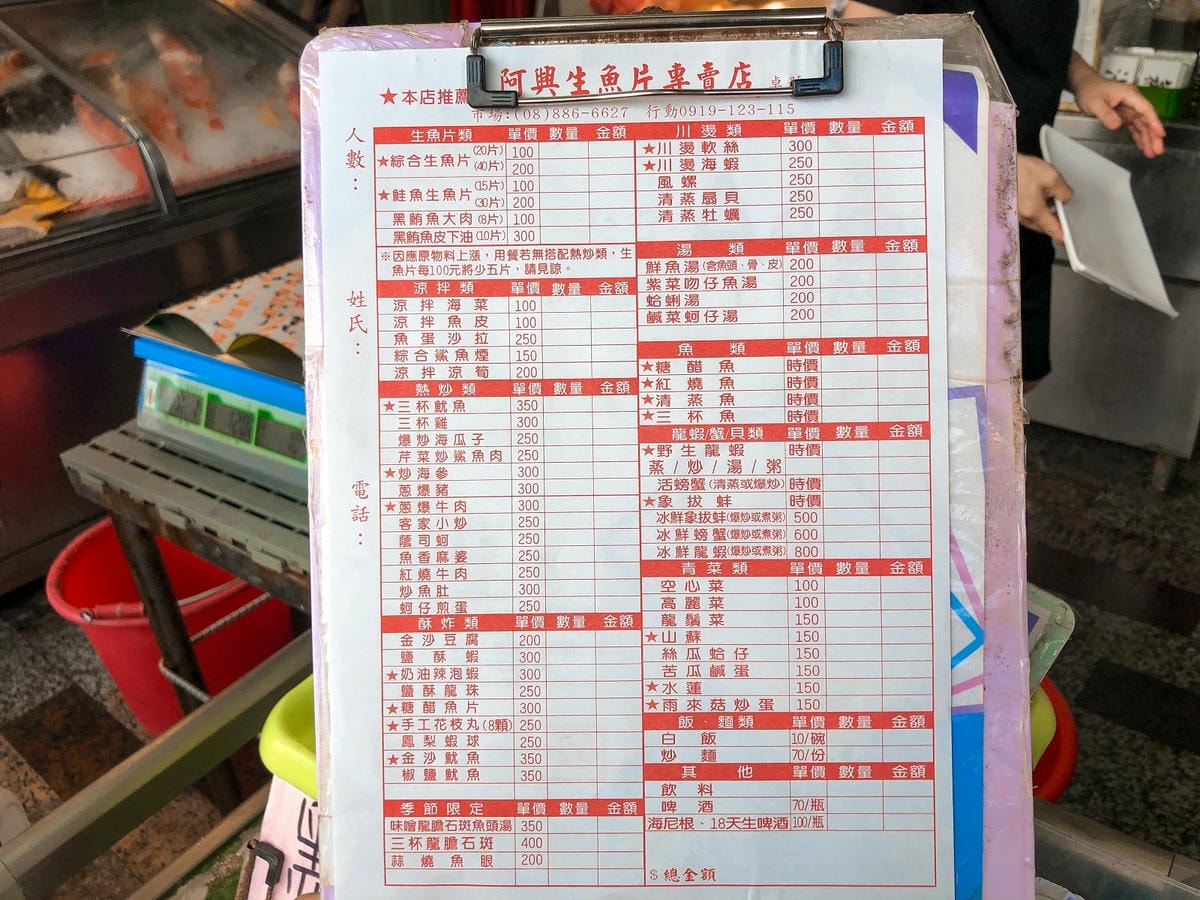 阿興生魚片專賣店
★本店推薦
市場:(08)886-6627 行動0919-123-115
人數：
姓氏：
電話：
生魚片類 單價 數量 金額
★綜合生魚片 (20片) 100
(40片) 200
★鮭魚生魚片 (15片) 100
(30片) 200
黑鮪魚大肉(8片) 100
黑鮪魚皮下油(10片) 300
※因應原物料上漲，用餐若無搭配熱炒類，生
魚片每100元將少五片，請見諒。
涼拌類 單價 數量 金額
涼拌海菜 100
涼拌魚皮 100
魚蛋沙拉 250
綜合鯊魚煙 150
涼拌涼筍 200
熱炒類 單價 數量 金額
★三杯魷魚 350
三杯雞 300
爆炒海瓜子 250
芹菜炒鯊魚肉 250
★炒海參 300
蔥爆豬 300
★蔥爆牛肉 300
客家小炒 250
蔭司蚵 250
魚香麻婆 250
紅燒牛肉 250
炒魚肚 300
蚵仔煎蛋 250
酥炸類 單價 數量 金額
金沙豆腐 200
鹽酥蝦 300
★奶油辣泡蝦 300
鹽酥龍珠 250
★糖醋魚片 300
★手工花枝丸(8顆) 250
鳳梨蝦球 250
★金沙魷魚 350
椒鹽魷魚 350
季節限定 單價 數量 金額
味噌龍膽石斑魚頭湯 350
三杯龍膽石斑 400
蒜燒魚眼 200
川燙類 單價 數量 金額
★川燙軟絲 300
★川燙海蝦 250
風螺 250
清蒸扇貝 250
清蒸牡蠣 250
湯類 單價 數量 金額
鮮魚湯(含魚頭、骨、皮) 200
紫菜吻仔魚湯 200
蛤蜊湯 200
鹹菜蚵仔湯 200
魚類 單價 數量 金額
★糖醋魚 時價
★紅燒魚 時價
★清蒸魚 時價
★三杯魚 時價
龍蝦/蟹/貝類 單價 數量 金額
★野生龍蝦 時價
蒸/炒/湯/粥
活螃蟹(清蒸或爆炒) 時價
★象拔蚌 時價
冰鮮象拔蚌(爆炒或煮粥) 500
冰鮮螃蟹(爆炒或煮粥) 600
冰鮮龍蝦(爆炒或煮粥) 800
青菜類 單價 數量 金額
空心菜 100
高麗菜 100
龍鬚菜 150
★山蘇 150
絲瓜蛤仔 150
苦瓜鹹蛋 150
★水蓮 150
★雨來菇炒蛋 150
飯、麵類 單價 數量 金額
白飯 10/碗
炒麵 70/份
其他 單價 數量 金額
飲料
啤酒 70/瓶
海尼根、18天生啤酒 100/瓶
$總金額